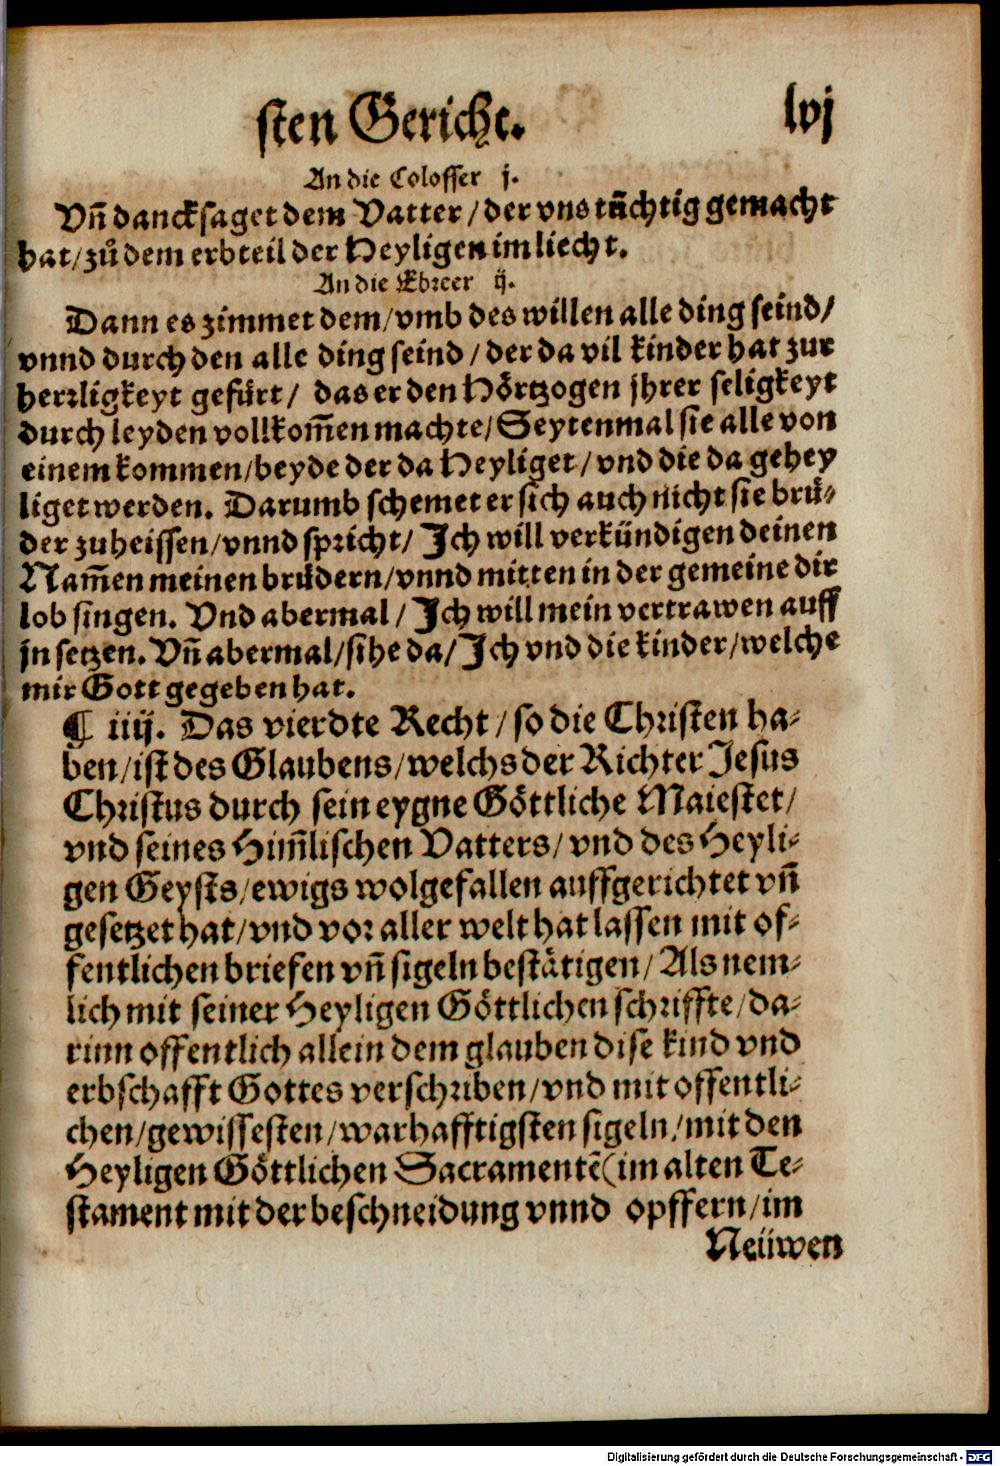 sten Gericht. lvj
An die Colosser j.
Vñ dancksaget dem Vatter / der vns tüchtig gemacht
hat / zů dem erbteil der Heyligen im liecht.
An die Ebreer ij.
Dann es zimmet dem / vmb des willen alle ding seind /
vnnd durch den alle ding seind / der da vil kinder hat zur
herrligkeyt gefürt / das er den Hörtzogen jhrer seligkeyt
durch leyden vollkom̃en machte / Seytenmal sie alle von
einem kommen / beyde der da Heyliget / vnd die da gehey
liget werden. Darumb schemet er sich auch nicht sie brü-
der zuheissen / vnnd spricht / Ich will verkündigen deinen
Nam̃en meinen brüdern / vnnd mitten in der gemeine dir
lob singen. Vnd abermal / Ich will mein vertrawen auff
jn setzen. Vñ abermal / sihe da / Ich vnd die kinder / welche
mir Gott gegeben hat.
¶ iiij. Das vierdte Recht / so die Christen ha-
ben / ist des Glaubens / welchs der Richter Jesus
Christus durch sein eygne Göttliche Maiestet /
vnd seines Him̃lischen Vatters / vnd des Heyli-
gen Geysts / ewigs wolgefallen auffgerichtet vñ
gesetzet hat / vnd vor aller welt hat lassen mit of-
fentlichen briefen vñ sigeln bestätigen / Als nem-
lich mit seiner Heyligen Göttlichen schriffte / da-
rinn offentlich allein dem glauben dise kind vnd
erbschafft Gottes verschriben / vnd mit offentli-
chen / gewissesten / warhafftigsten sigeln / mit den
Heyligen Göttlichen Sacramentẽ (im alten Te-
stament mit der beschneidung vnnd opffern / im
Neüwen
Digitalisierung gefördert durch die Deutsche Forschungsgemeinschaft - DFG